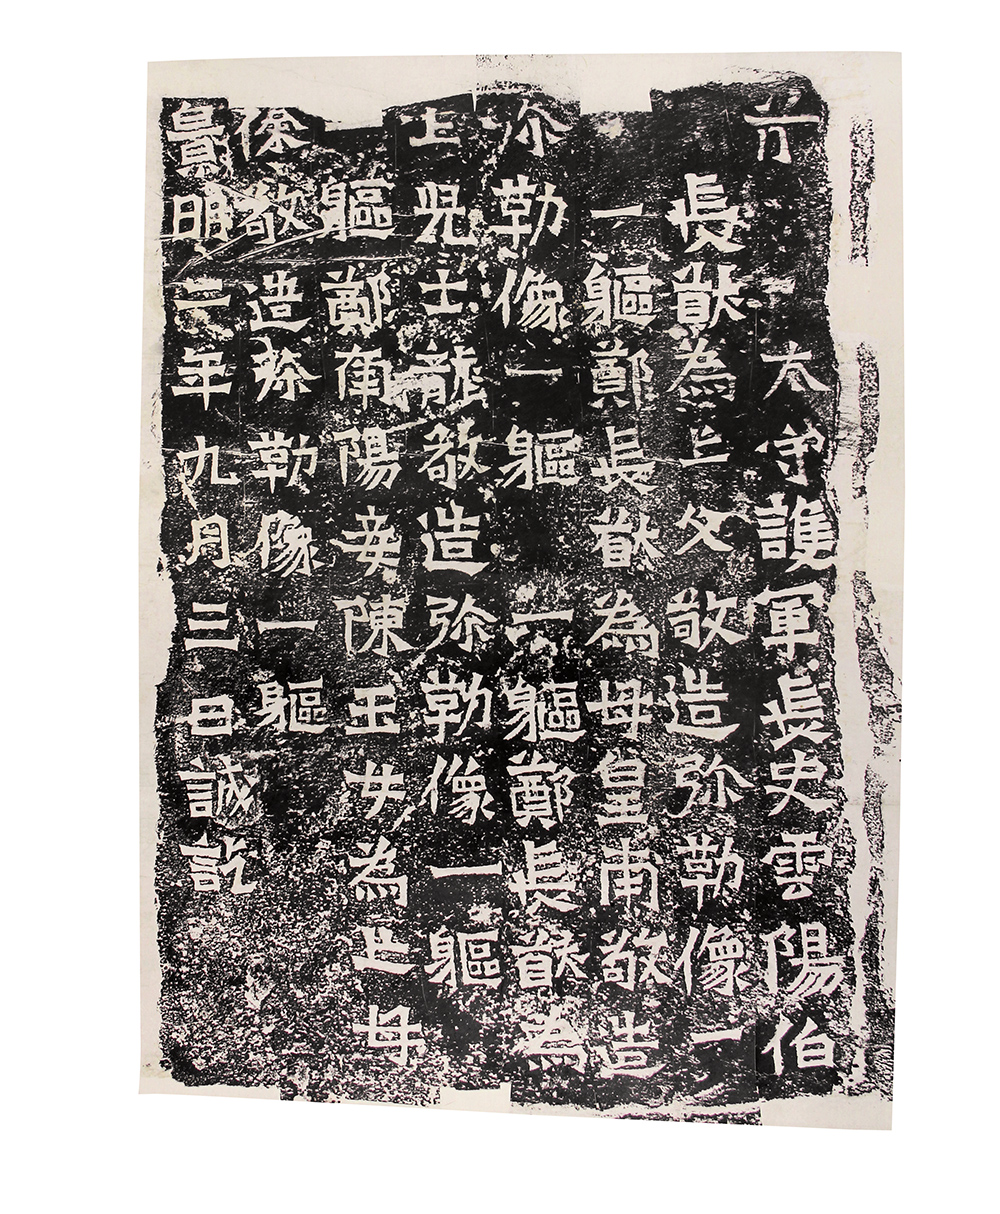 前太守護軍長史雲陽伯
長猷為亡父敬造弥勒像一
一軀鄭長猷為母皇甫敬造
弥勒像一軀一軀鄭長猷為
亡兒士龍敬造弥勒像一軀
軀鄭南陽妾陳玉女為亡母
徐敬造弥勒像一軀
景明二年九月三日誡訖